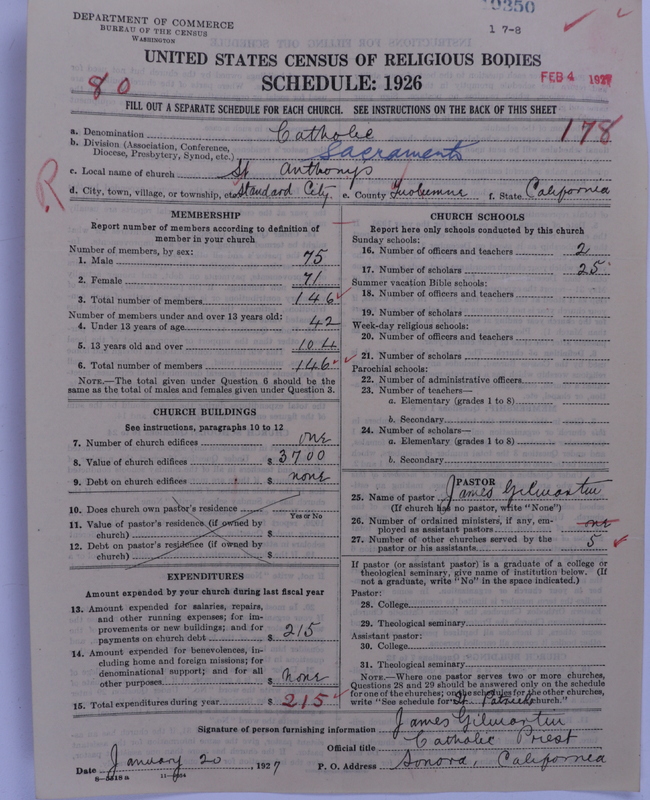 19350
1 7-8
DEPARTMENT OF COMMERCE
BUREAU OF THE CENSUS
WASHINGTON
UNITED STATES CENSUS OF RELIGIOUS BODIES
SCHEDULE: 1926
FEB 4 1927
80
FILL OUT A SEPARATE SCHEDULE FOR EACH CHURCH. SEE INSTRUCTIONS ON THE BACK OF THIS SHEET
a. Denomination Catholic 178
b. Division (Association, Conference,
Diocese, Presbytery, Synod, etc.) Sacramento
c. Local name of church St Anthonys
R
d. City, town, village, or township, etc. Standard City e. County Tuolumne f. State California
MEMBERSHIP
Report number of members according to definition of
member in your church
Number of members, by sex:
1. Male 75
2. Female 71
3. Total number of members 146
Number of members under and over 13 years old:
4. Under 13 years of age 42
5. 13 years old and over 104
6. Total number of members 146
NOTE.—The total given under Question 6 should be
same as the total of males and females given under Question 3.
CHURCH BUILDINGS
See instructions, paragraphs 10 to 12
7. Number of church edifices one
8. Value of church edifices $ 3700
9. Debt on church edifices $ none
10. Does church own pastor's residence
Yes or No
11. Value of pastor's residence (if owned by
church) $
12. Debt on pastor's residence (if owned by
church) $
EXPENDITURES
Amount expended by your church during last fiscal year
13. Amount expended for salaries, repairs,
and other running expenses; for im-
provements or new buildings; and for
payments on church debt $ 215
14. Amount expended for benevolences, in-
cluding home and foreign missions; for
denominational support; and for all
other purposes $ none
15. Total expenditures during year $ 215
CHURCH SCHOOLS
Report here only schools conducted by this church
Sunday schools:
16. Number of officers and teachers 2
17. Number of scholars 25
Summer vacation Bible schools:
18. Number of officers and teachers
19. Number of scholars
Week-day religious schools:
20. Number of officers and teachers
21. Number of scholars
Parochial schools:
22. Number of administrative officers
23. Number of teachers—
a. Elementary (grades 1 to 8)
b. Secondary
24. Number of scholars—
a. Elementary (grades 1 to 8)
b. Secondary
PASTOR
25. Name of pastor James Gilmartin
(If church has no pastor, write "None")
26. Number of ordained ministers, if any, em-
ployed as assistant pastors one
27. Number of other churches served by the
pastor or his assistants 5
If pastor (or assistant pastor) is a graduate of a college or
theological seminary, give name of institution below. (If
not a graduate, write "No" in the space indicated.)
Pastor:
28. College
29. Theological seminary
Assistant pastor:
30. College
31. Theological seminary
NOTE.—Where one pastor serves two or more churches,
Questions 28 and 29 should be answered only on the schedule
for one of the churches; on the schedules for the other churches,
write "See schedule for St Patricks church."
Signature of person furnishing information James Gilmartin
Official title Catholic Priest
Date January 20, 1927 P. O. Address Sonora, California